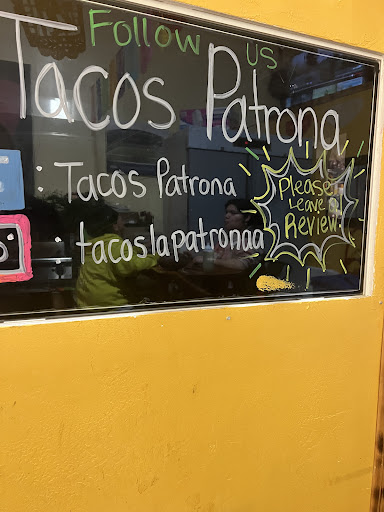 Follow us
Tacos Patrona
: Tacos Patrona
: tacoslapatronaa
Please
Leave a
Review!